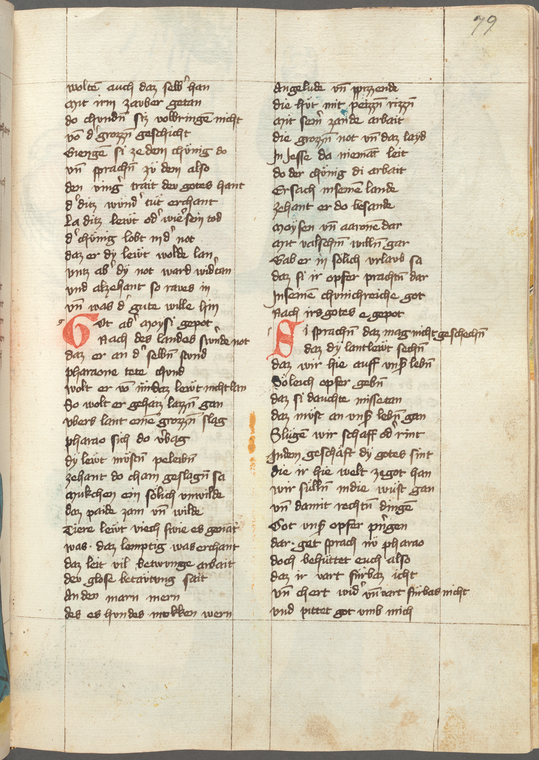 79
wolten auch daz selb han
mit irm zauber getan
do chunden si volbringen nicht
vo d grozzn geschicht
Giengen si ze dem chönig do
vn sprachn zu dem also
den ving trait der gotes hant
d ditz wund tut erchant
La ditz lewt od wie sein tod
d chönig lobt in d not
daz er dy lewt wolde lan
vntz ab dy not ward
und alzehant so
vn was d gute wille hin
Got ab moysi gepot
Nach des landes sunde not
daz er an d selbn stund
pharaone tete chund
wolt er vo im daz lewt nicht lan
So wolt er gehazz lazzn gan
vbers lant eine grozzn slag
pharao sich do
dy lewt mustn peleibn
zehant do cham geslagn sa
mukchen ein solich vnwilde
daz paide zam vn wilde
Tiere lewt viech swie es genat
was daz lemptig was erchant
daz leit vil betwunge arbait
der glose betautung sait
an den marn mern
des es hundes mukken wern
Angelude vn
die hut mit pezzn rizzn
mit sem zande arbait
die grozzn not vn daz layd
in Jesse da niemat leit
do der chönig di arbait
Ersach in seinem lande
zehant er do besande
Moysen vn aarone dar
mit valschem willn gar
Gab er in solich vrlaub sa
daz si ir opfer prachtn dar
In seinem chunichreiche got
Nach irs gotes e gepot
Si sprachn daz mag nicht geschechn
daz dy lantlewt sechn
daz wir hie auff vnsz lebn
Soleich opfer gebn
daz si dauchte missetan
daz müst an vnsz lebn gan
Slügen wir schaff od rint
In dem geschäft dy gotes sint
die ir hie welt ze got han
wir sülln in die wüst gan
vn damit rechtn dingen
Got vnsz opfer pringen
dar get sprach in pharao
doch behüttet euch also
daz ir vart fürbaz icht
vn chert wid vn vart fürbas nicht
vnd pittet got vmb mich